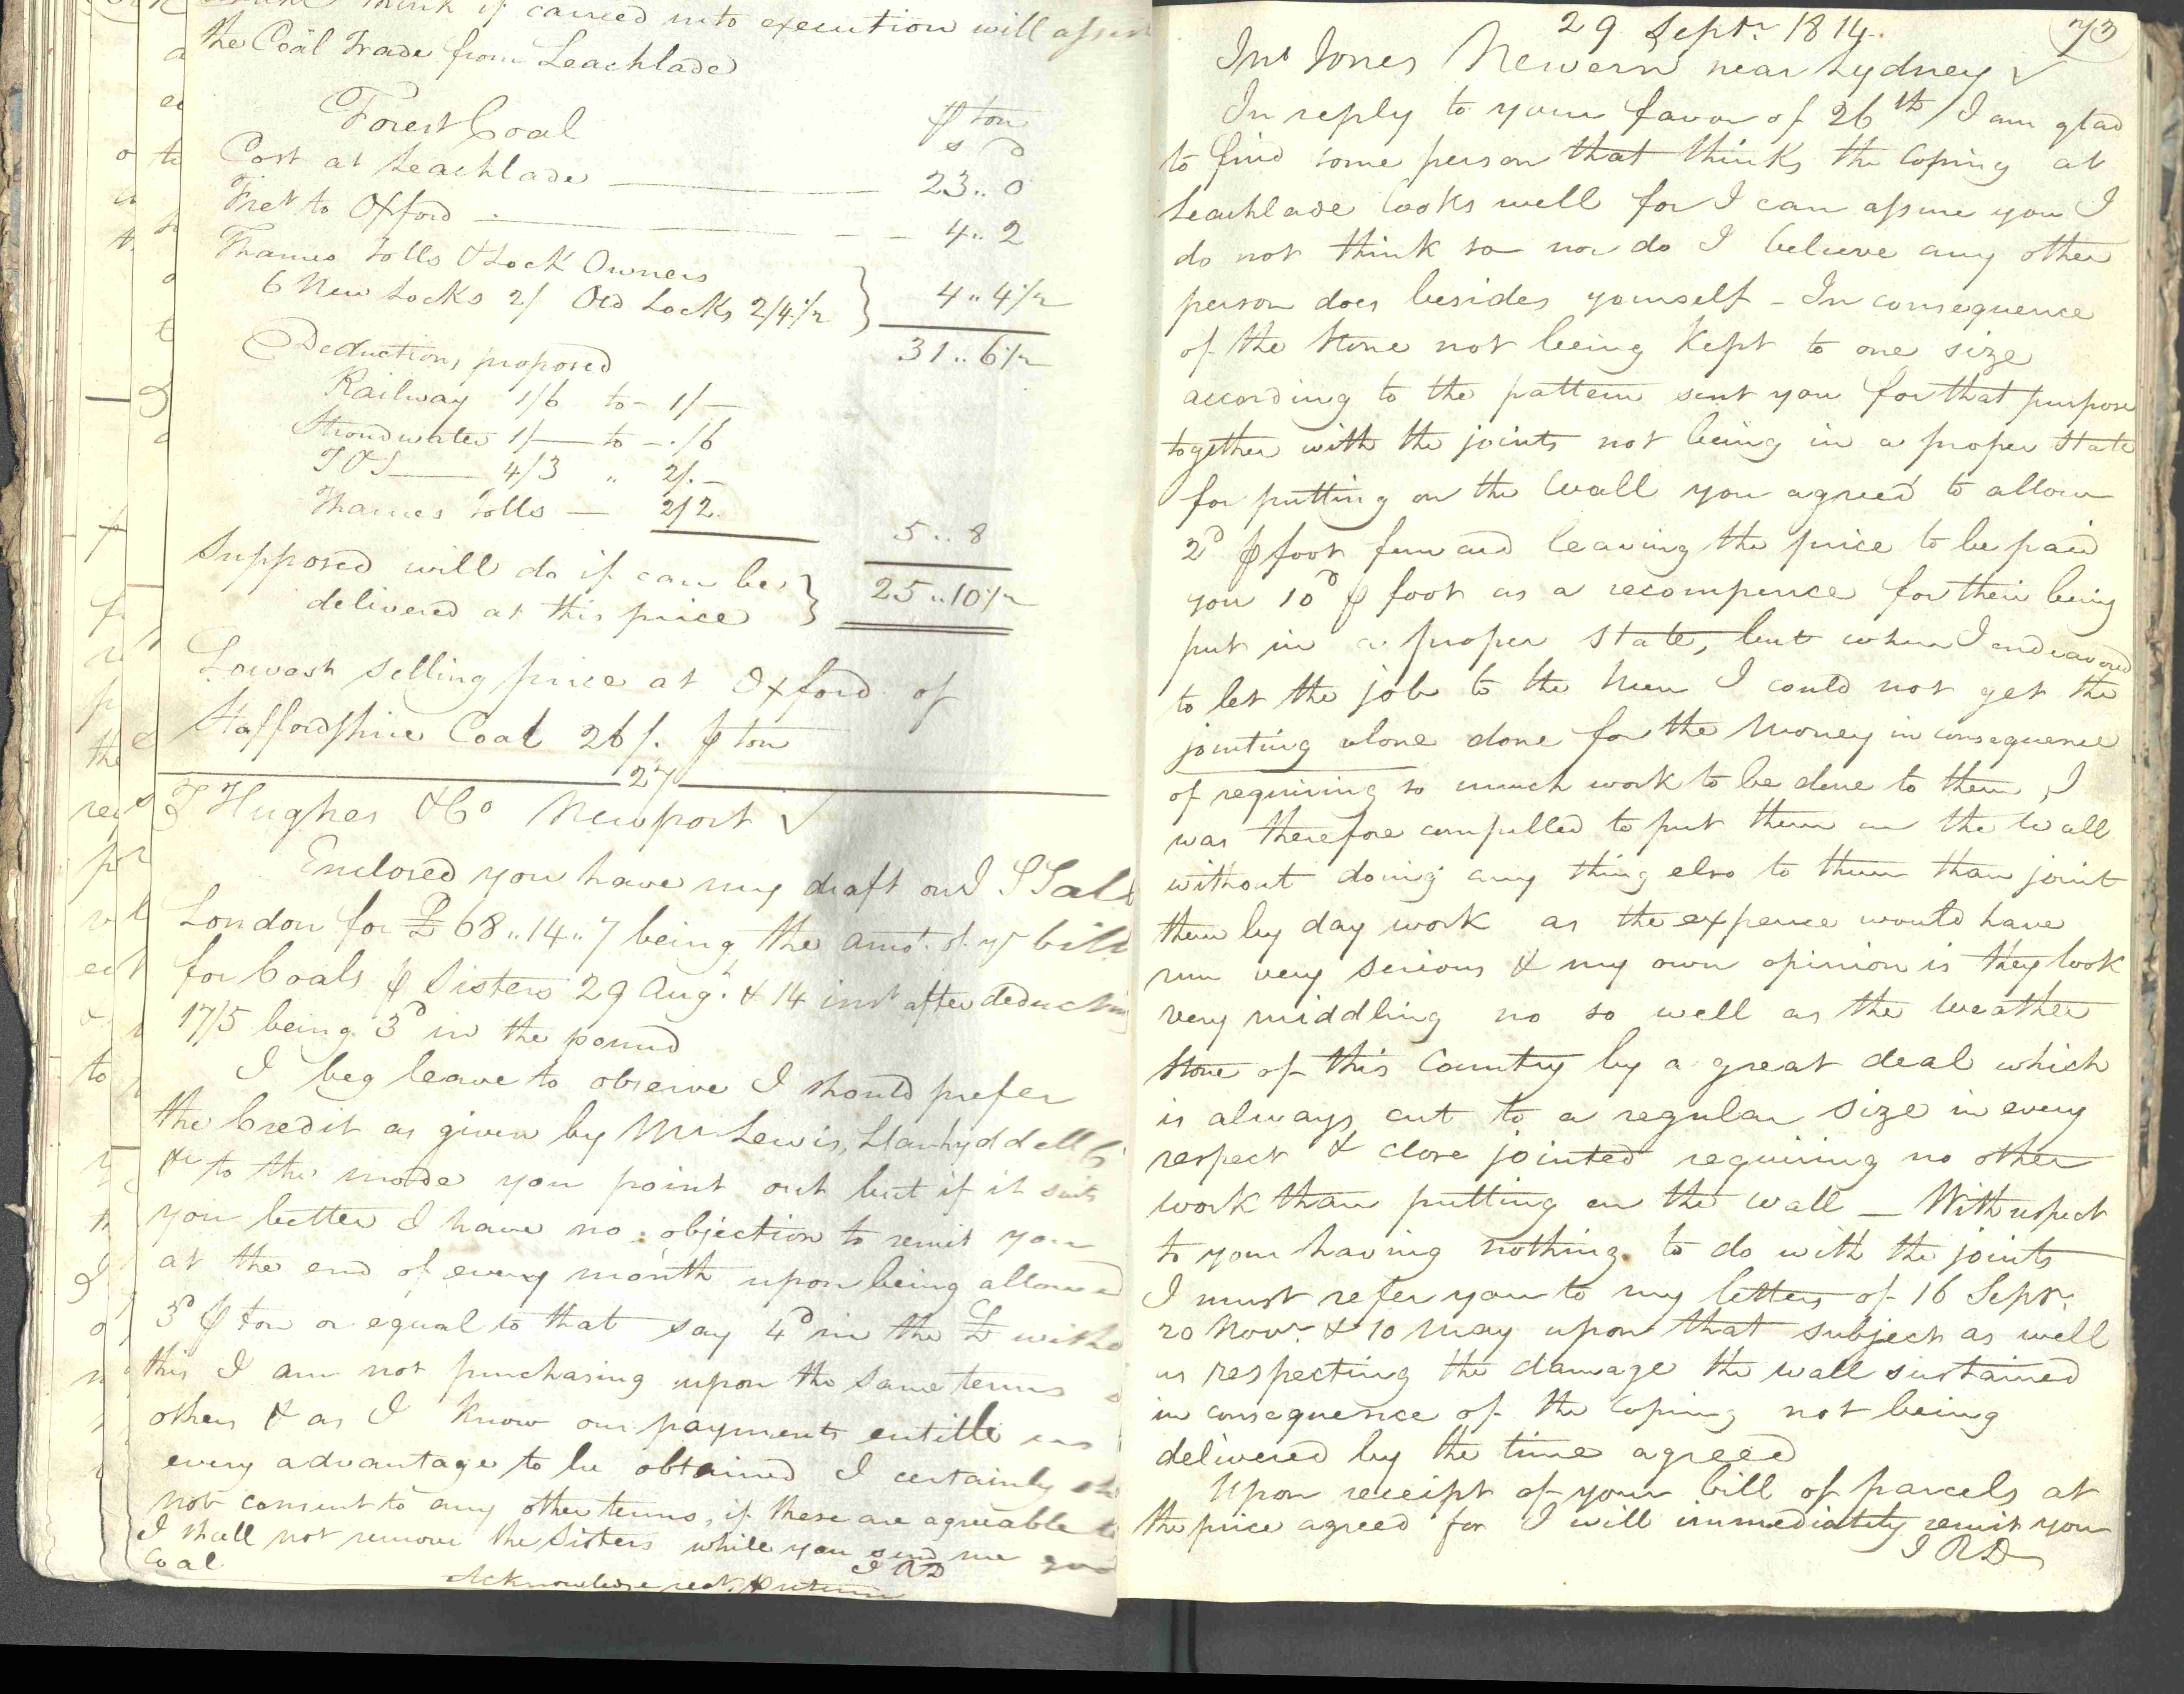 think if carried into execution will assist
the Coal Trade from Leachlade
Forest Coal
⅌ ton
s d
Cost at Leachlade 23.. 0
Fret to Oxford 4.. 2
Thames Tolls & Lock Owners
6 New Locks 2/ Old Locks 2/4½ } 4.. 4½
31.. 6½
Deductions proposed
Railway 1/6 to 1/-
Stroudwater 1/- to -./6
T&S 4/3 " 2/.-
Thames Tolls - 2/2
5.. 8
Supposed will do if can be }
delivered at this price } 25..10½
Lowest selling price at Oxford of
Staffordshire Coal 26/. ⅌ ton
27
T Hughes & Co Newport ✓
Enclosed you have my draft on
London for £68..14..7 being the amot. of yr bill
for Coals ⅌ Sisters 29 Augt. & 14 inst after deducting
17/5 being 3d in the pound
I beg leave to observe I should prefer
the Credit as given by Mr Lewis, Llanhyddell
&c to the mode you point out but if it suits
you better I have no objection to remit you
at the end of every month upon being allowed
3d ⅌ ton or equal to that say 4d in the £
this I am not purchasing upon the same terms
others & as I know our payments entitle us
every advantage to be obtained I certainly
not consent to any other terms, if these are agreeable
I shall not remove the Sisters while you send me good
Coal
I A D
Acknowledge rect. ⅌ return
29 Septr. 1814.
73
Jno Jones Newern near Lydney ✓
In reply to your favor of 26th I am glad
to find some person that thinks the Coping at
Leachlade looks well for I can assure you I
do not think so nor do I believe any other
person does besides yourself - In consequence
of the stone not being kept to one size
according to the pattern sent you for that purpose
together with the joints not being in a proper state
for putting on the Wall you agreed to allow
2d ⅌ foot leaving the price to be paid
you 10d ⅌ foot as a recompence for their being
put in a proper state, but when I endeavored
to let the job to the Men I could not get the
jointing alone done for the Money in consequence
of requiring so much work to be done to them, I
was therefore compelled to put them on the Wall
without doing any thing else to them than joint
them by day work as the expence would have
run very serious & my own opinion is they look
very middling no so well as the Weather
stone of this Country by a great deal which
is always cut to a regular size in every
respect & close jointed requiring no other
work than putting on the Wall - With respect
to your having nothing to do with the joints
I must refer you to my letters of 16 Septr.
20 Novr. & 10 May upon that subject as well
as respecting the damage the wall sustained
in consequence of the Coping not being
delivered by the time agreed
Upon receipt of your bill of parcels at
the price agreed for I will immediately remit you
I A D